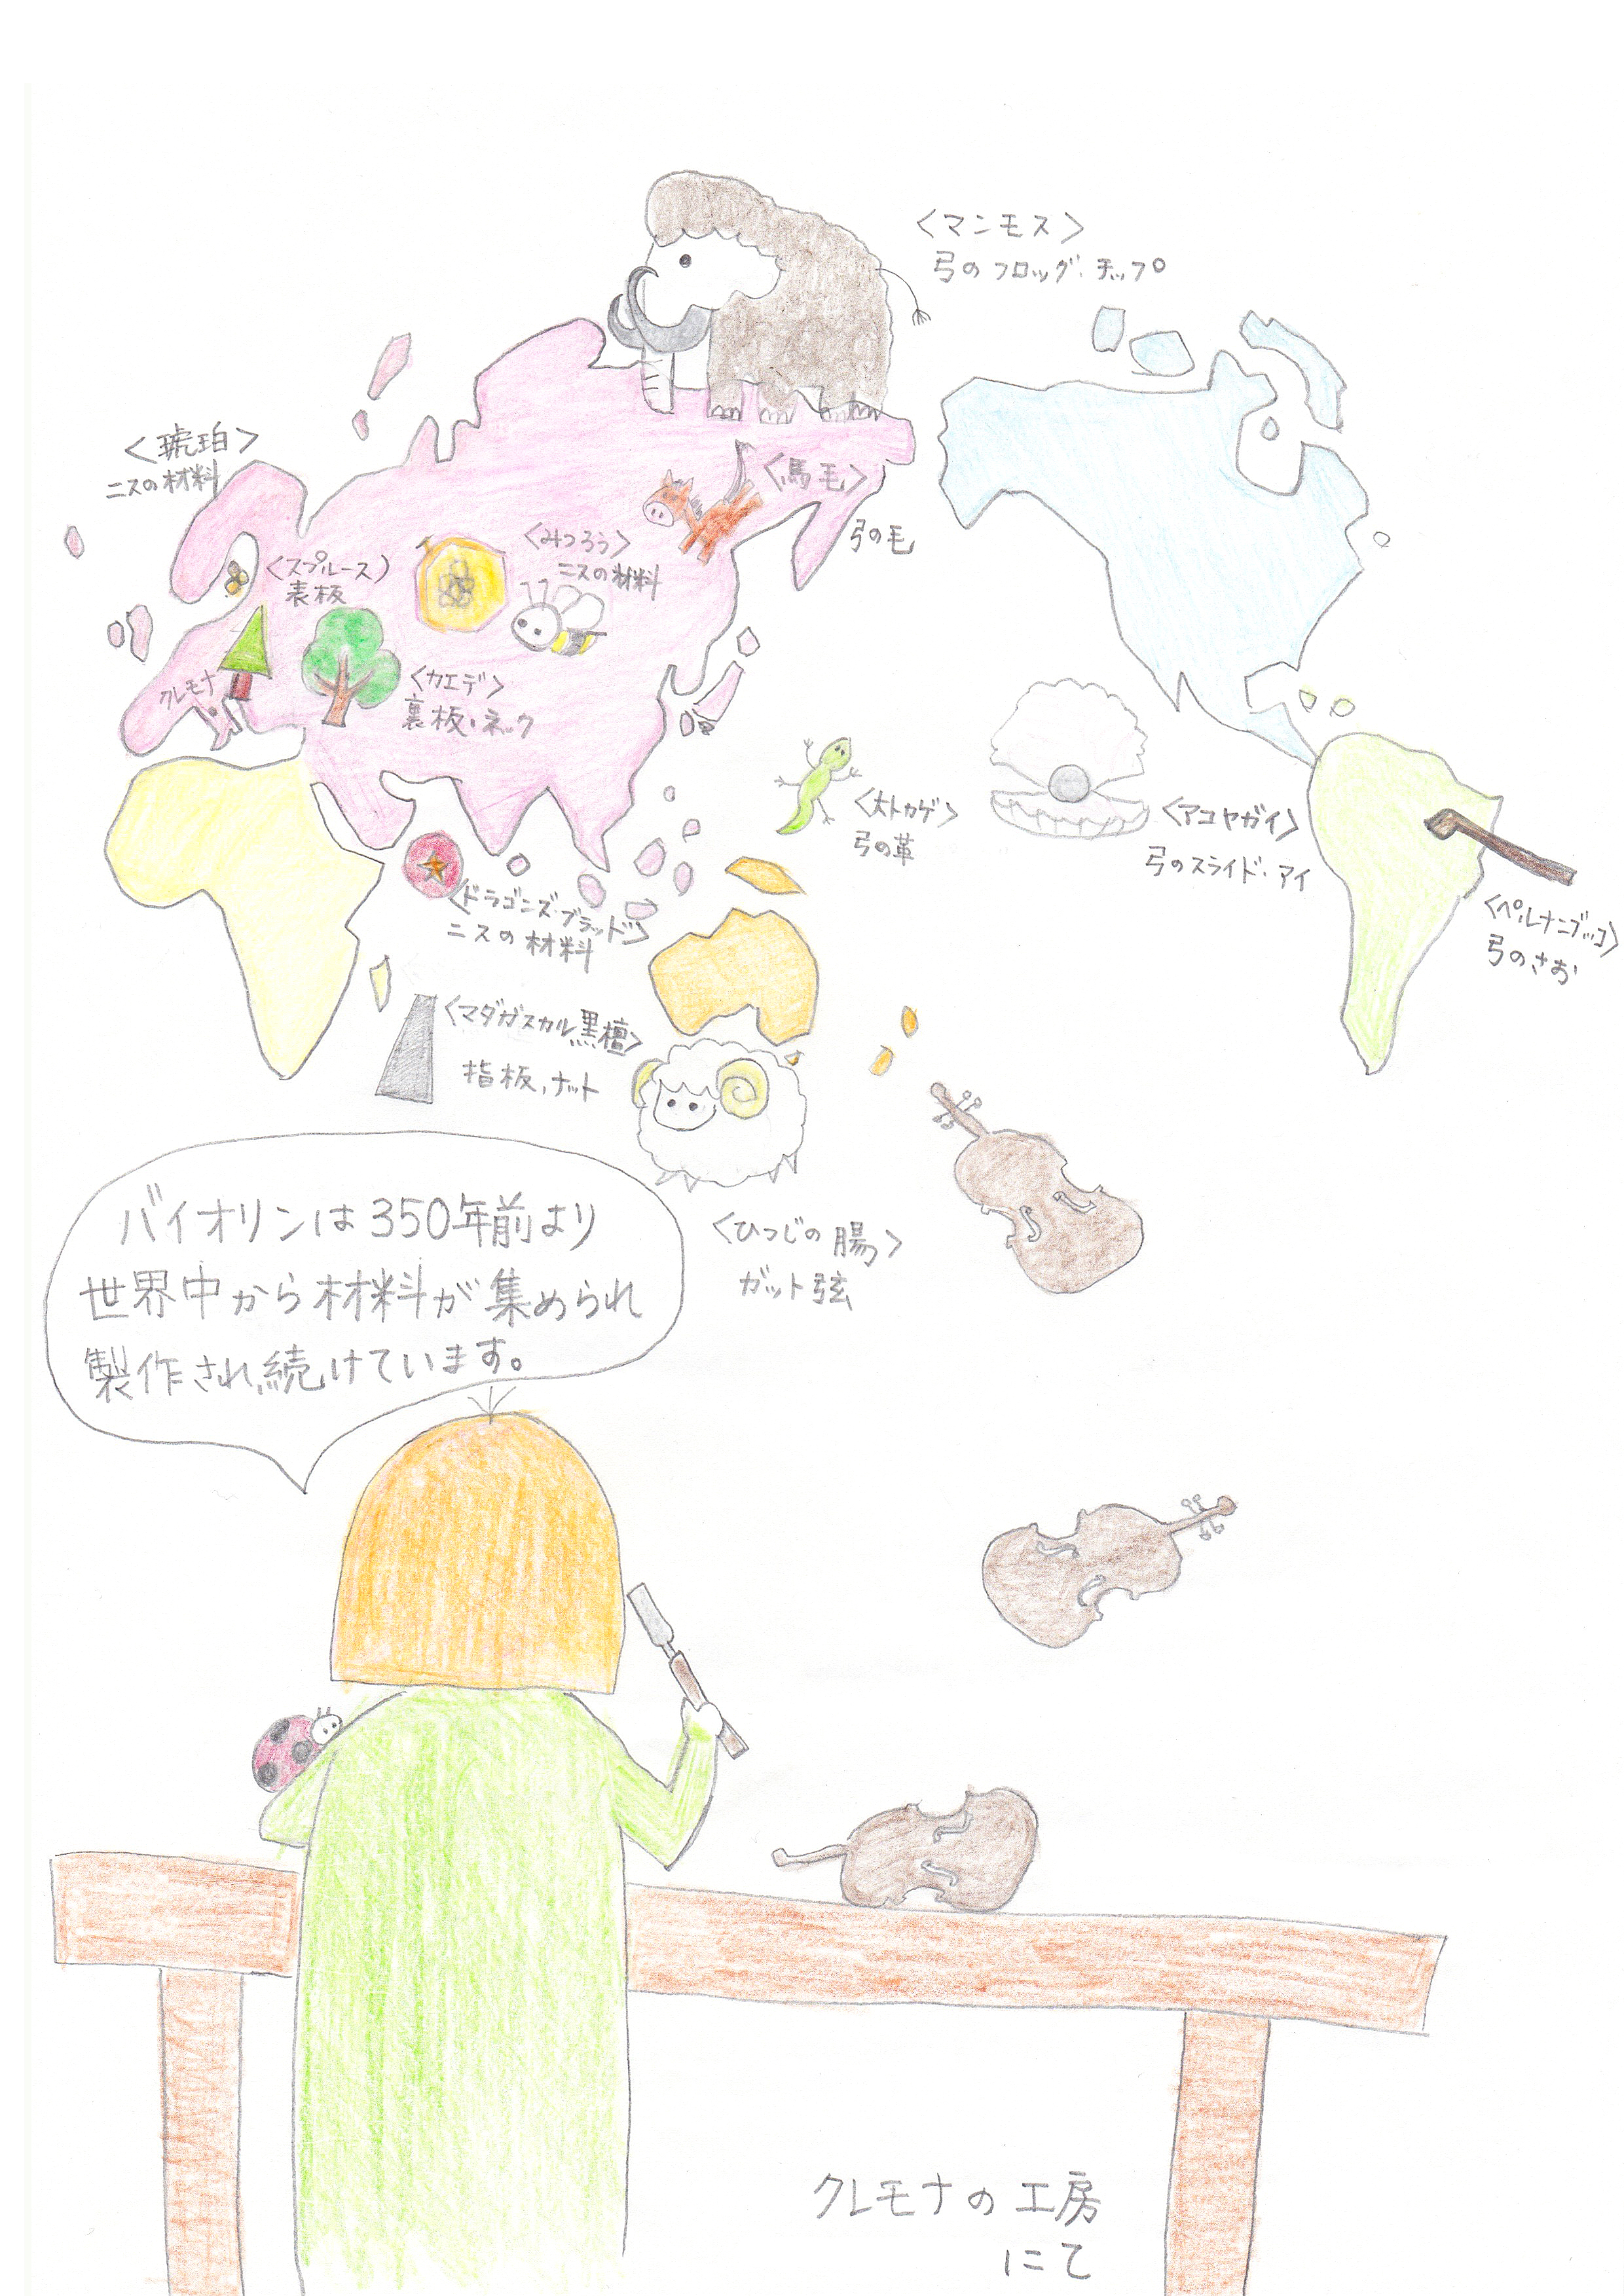 <マンモス>
弓のフロッグ・チップ
<琥珀>
ニスの材料
<馬毛>
弓の毛
<みつろう>
ニスの材料
<スプルース>
表板
クレモナ
<カエデ>
裏板・ネック
<大トカゲ>
弓の革
<アコヤガイ>
弓のスライド・アイ
<ペルナンブッコ>
弓のさお
<ドラゴンズ・ブラッド>
ニスの材料
<マダガスカル黒檀>
指板、ナット
<ひつじの腸>
ガット弦
バイオリンは350年前より
世界中から材料が集められ
製作され続けています。
クレモナの工房
にて